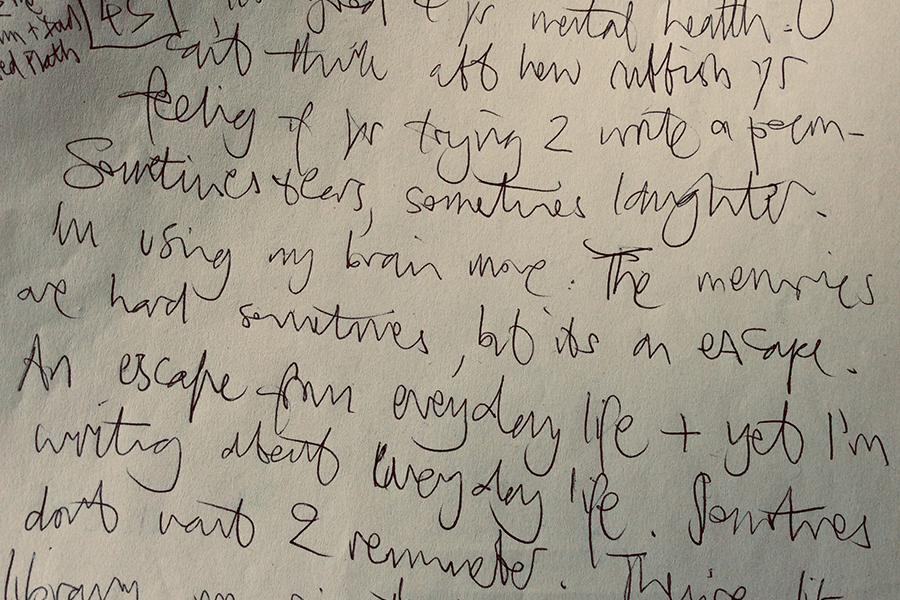 45
good 4 yr mental health. U
can't think abt how rubbish yr
feeling if yr trying 2 write a poem –
Sometimes tears, sometimes laughter.
Im using my brain more. The memories
are hard sometimes, but its an escape.
An escape from everyday life + yet I'm
writing about everyday life. Sometimes
don't want 2 remember.